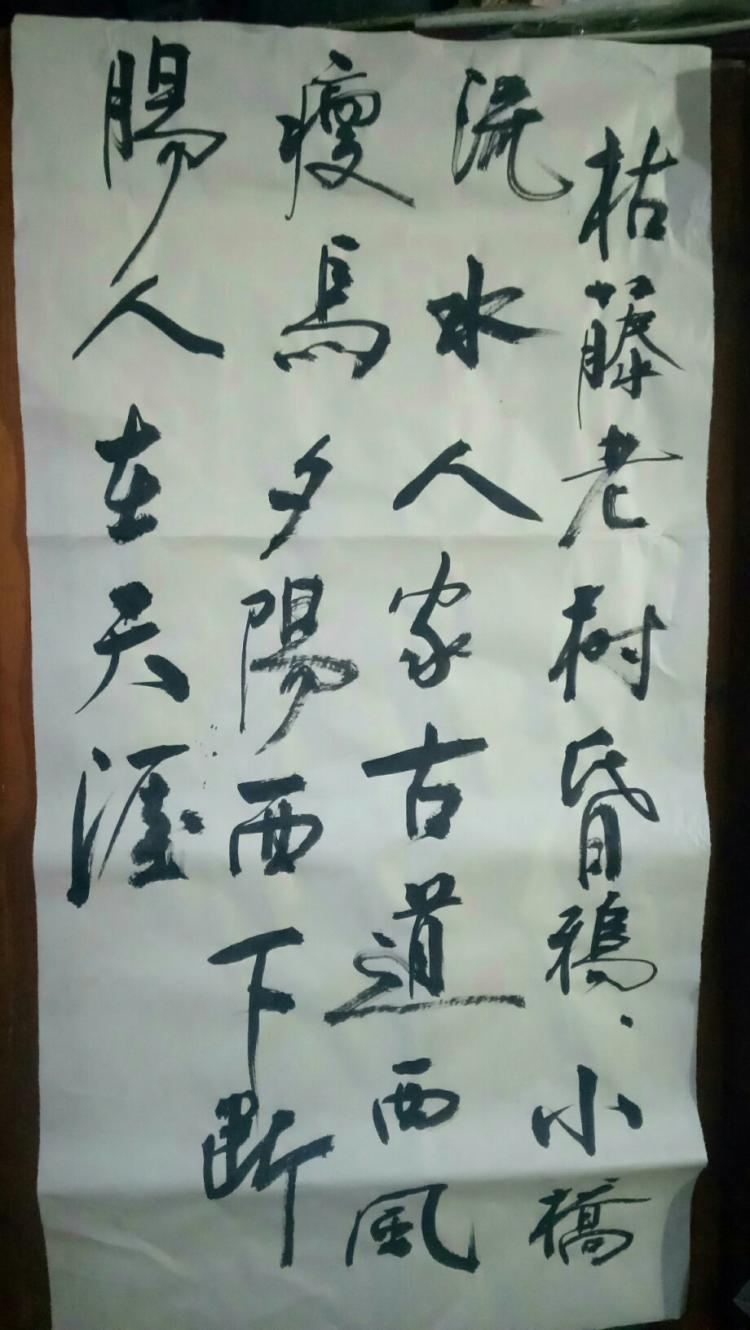 枯藤老树昏鴉、小橋
流水人家古道西風
瘦馬夕陽西下断
腸人在天涯